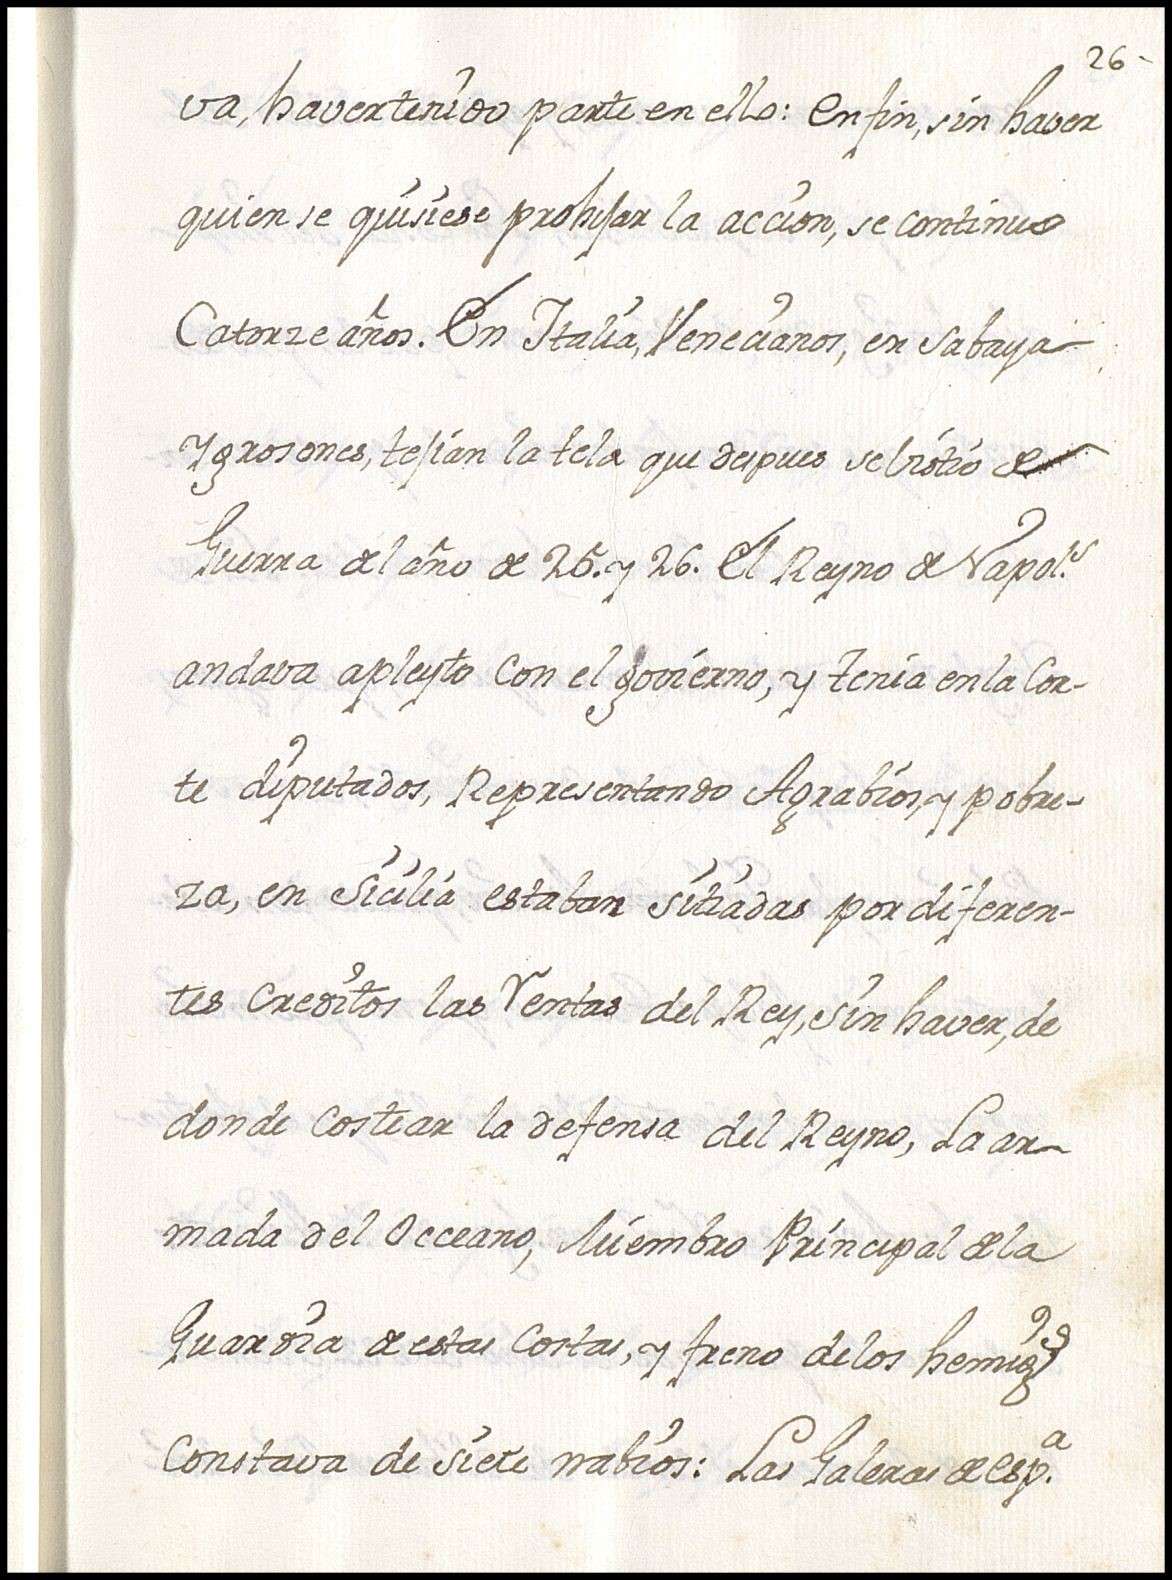 26-
va, haver tenido parte en ello: En fin, sin haver
quien se quisiese prohijar la accion, se continuo
Catorze años. En Italia, Venecianos, en Sabaya
y grosones, tejian la tela que depues se bistio de
Guerra del año de 25. y 26. El Reyno de Napol.s
andava apleyto con el govierno, y tenia en la Cor-
te diputados, Representando Agrabios, y pobre-
za, en Sicilia estaban sitiadas por diferen-
tes Creditos las Ventas del Rey, sin haver, de
donde Costear la defensa del Reyno, La ar-
mada del Occeano, Miembro Principal de la
Guardia de estas Costas, y freno delos hemigs
Constava de siete nabios: Las Galeras de Esp.a